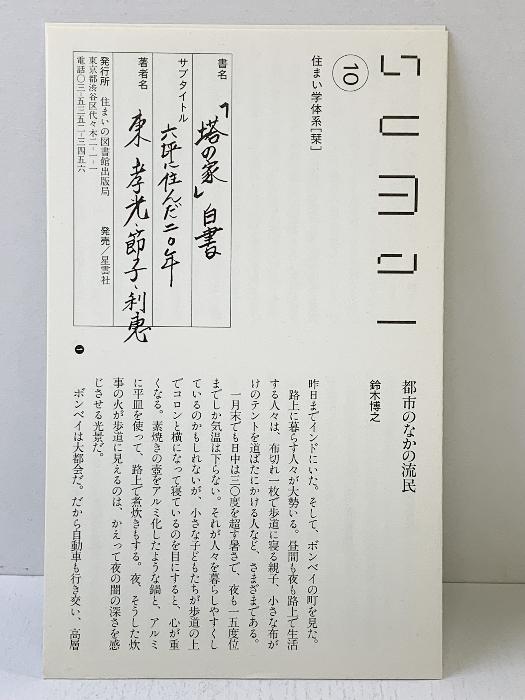 sumai
10
住まい学体系[栞]
書名
「塔の家」白書
サブタイトル
六坪に住んだ二〇年
著者名
東 孝光・節子・利恵
発行所 住まいの図書館出版局 発売/星雲社
東京都渋谷区代々木二-一-一
電話〇三-五三五二-三四五六
一
都市のなかの流民
鈴木博之
昨日までインドにいた。そして、ボンベイの町を見た。
路上に暮らす人々が大勢いる。昼間も夜も路上で生活
する人々は、布切れ一枚で歩道に寝る親子、小さな布が
けのテントを道ばたにかける人など、さまざまである。
一月末でも日中は三〇度を超す暑さで、夜も一五度位
までしか気温は下らない。それが人々を暮らしやすくし
ているのかもしれないが、小さな子どもたちが歩道の上
でコロンと横になって寝ているのを目にすると、心が重
くなる。素焼きの壺をアルミ化したような鍋と、アルミ
に平皿を使って、路上で煮炊きもする。夜、そうした炊
事の火が歩道に見えるのは、かえって夜の闇の深さを感
じさせる光景だ。
ボンベイは大都会だ。だから自動車も行き交い、高層